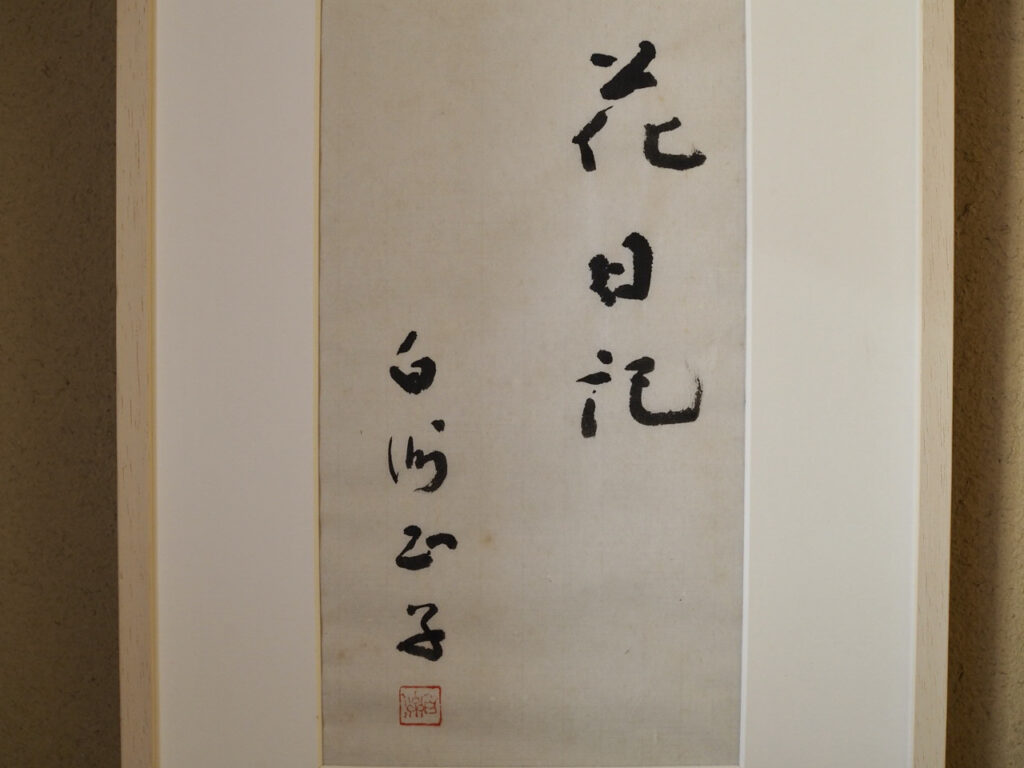 花日記
白洲正子